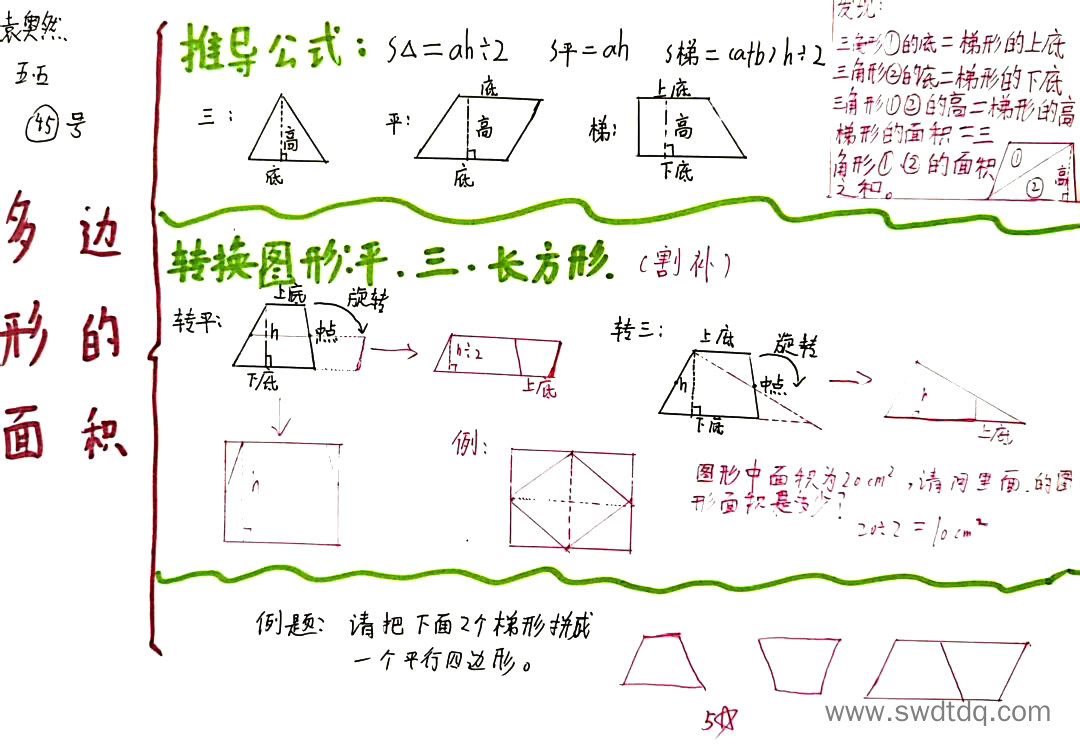 袁奥然
五.五
㊺号
多边
形的
面积
推导公式: S△=ah÷2 S平=ah S梯=(a+b)h÷2
三: 高 底
平: 底 高 底
梯: 上底 高 下底
发现:
三角形①的底=梯形的上底
三角形②的底=梯形的下底
三角形①②的高=梯形的高
梯形的面积=三
角形①、②的面积
之和。
① ② 高
转换图形:平.三.长方形.(割补)
转平: 上底 旋转 h 中点 下底
h÷2 上底
h
转三: 上底 旋转 h 中点 下底
h 上底
例:
图形中面积为20cm²,请问里面的图
形面积是多少?
20÷2=10cm²
例题: 请把下面2个梯形拼成
一个平行四边形。
5☆
www.swdtdq.com